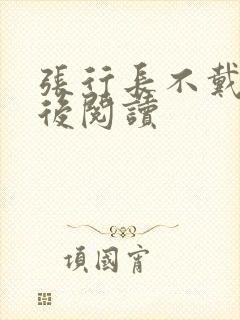 張行長不戴
後閱讀
項國宵